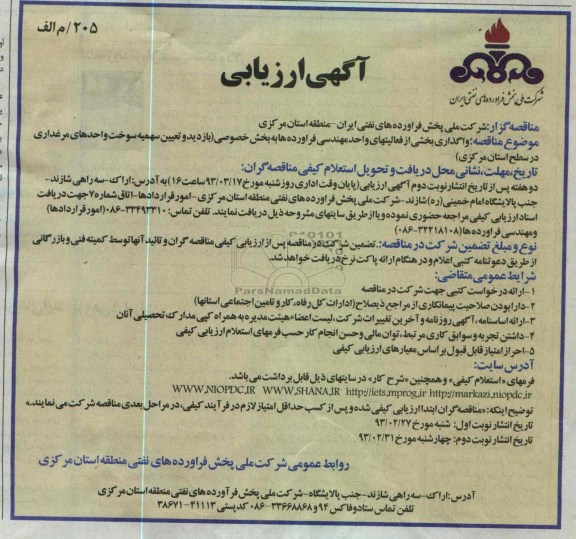 ۲۰۵/م الف
آگهی ارزیابی
شرکت ملی پخش فرآورده‌های نفتی ایران
مناقصه گزار: شرکت ملی پخش فرآورده های نفتی ایران -منطقه استان مرکزی
موضوع مناقصه: واگذاری بخشی از فعالیتهای واحد مهندسی فرآورده ها به بخش خصوصی (بازدید و تعیین سهمیه سوخت واحدهای مرغداری
در سطح استان مرکزی)
تاریخ، مهلت، نشانی محل دریافت و تحویل استعلام کیفی مناقصه گران:
دو هفته پس از تاریخ انتشار نوبت دوم آگهی ارزیابی (پایان وقت اداری روز شنبه مورخ ۹۳/۰۳/۱۷ ساعت ۱۶) به آدرس: اراک- سه راهی شازند-
جنب پالایشگاه امام خمینی (ره) شازند- شرکت ملی پخش فرآورده های نفتی منطقه استان مرکزی - امور قراردادها- اتاق شماره ۷ جهت دریافت
اسناد ارزیابی کیفی مراجعه حضوری نموده و یا از طریق سایتهای مشروحه ذیل دریافت نمایند. تلفن تماس: ۳۳۴۹۳۳۱۰-۰۸۶ (امور قراردادها)
ومهندسی فرآورده ها (۳۲۲۱۸۱۰۸-۰۸۶)
نوع و مبلغ تضمین شرکت در مناقصه: تضمین شرکت در مناقصه پس از ارزیابی کیفی مناقصه گران و تائید آنها توسط کمیته فنی و بازرگانی
از طریق دعوتنامه کتبی اعلام و در هنگام ارائه پاکت نرخ دریافت خواهد شد.
شرایط عمومی متقاضی:
۱-ارائه درخواست کتبی جهت شرکت در مناقصه
۲-دارا بودن صلاحیت پیمانکاری از مراجع ذیصلاح (ادارات کل رفاه، کار و تامین اجتماعی استانها)
۳-ارائه اساسنامه، آگهی روزنامه و آخرین تغییرات شرکت، لیست اعضاء هیئت مدیره به همراه کپی مدارک تحصیلی آنان
۴-داشتن تجربه و سوابق کاری مرتبط، توان مالی و حسن انجام کار حسب فرمهای استعلام ارزیابی کیفی
۵-احراز امتیاز قابل قبول بر اساس معیارهای ارزیابی کیفی
آدرس سایت:
فرمهای «استعلام کیفی» و همچنین «شرح کار» در سایتهای ذیل قابل برداشت می باشد.
WWW.NIOPDC.IR WWW.SHANA.IR http://iets.mporg.ir http://markazi.niopdc.ir
توضیح اینکه: «مناقصه گران ابتدا ارزیابی کیفی شده و پس از کسب حداقل امتیاز لازم در فرآیند کیفی، در مراحل بعدی مناقصه شرکت می نمایند.»
تاریخ انتشار نوبت اول: شنبه مورخ ۹۳/۰۲/۲۷
تاریخ انتشار نوبت دوم: چهارشنبه مورخ ۹۳/۰۲/۳۱
روابط عمومی شرکت ملی پخش فرآورده های نفتی منطقه استان مرکزی
آدرس: اراک- سه راهی شازند- جنب پالایشگاه- شرکت ملی پخش فرآورده های نفتی منطقه استان مرکزی
تلفن تماس ستاد و فاکس ۹۴ و ۳۳۶۶۸۸۶۸-۰۸۶ کدپستی ۴۱۱۱۳-۳۸۶۷۱
ParsNamadData